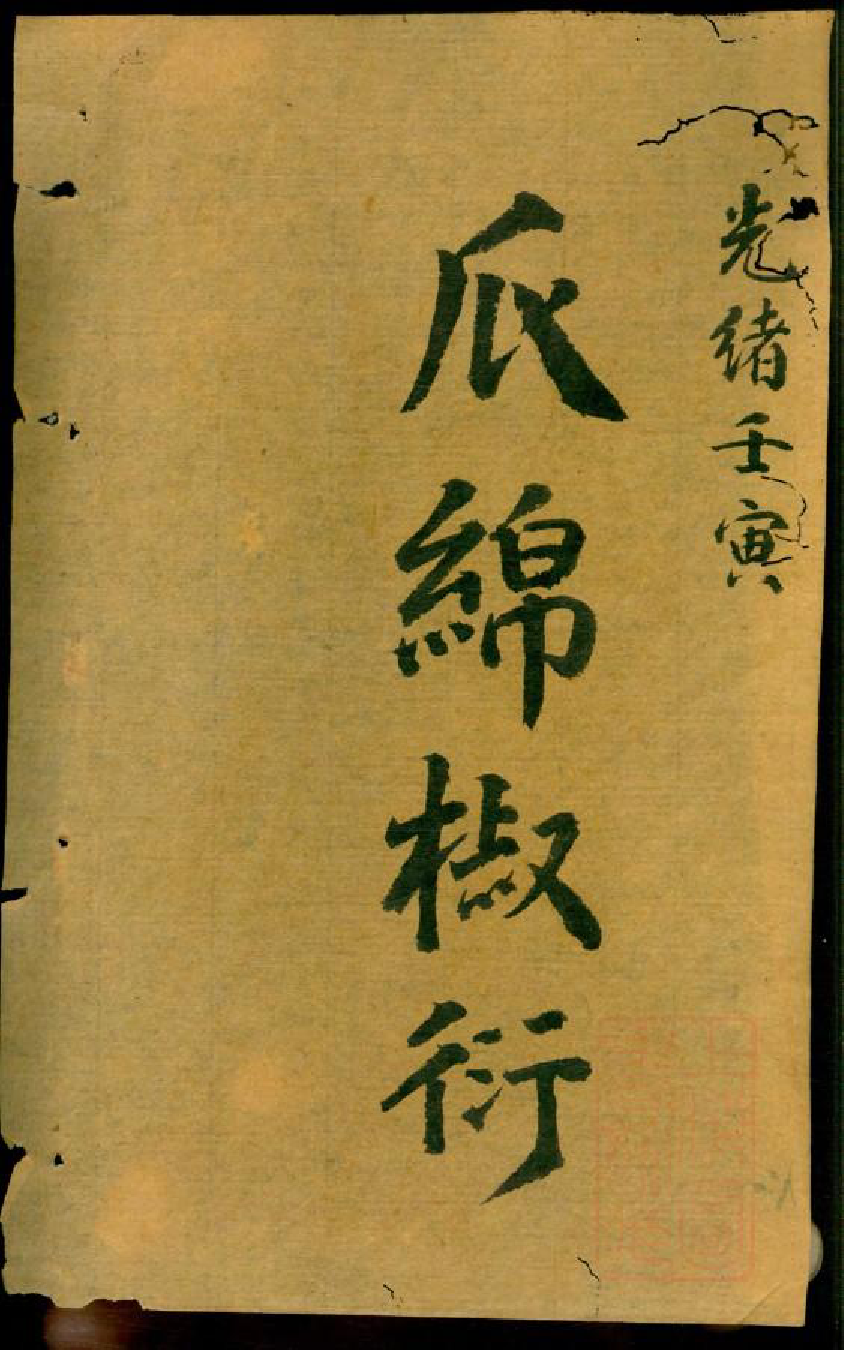 光緒壬寅
瓜綿椒衍